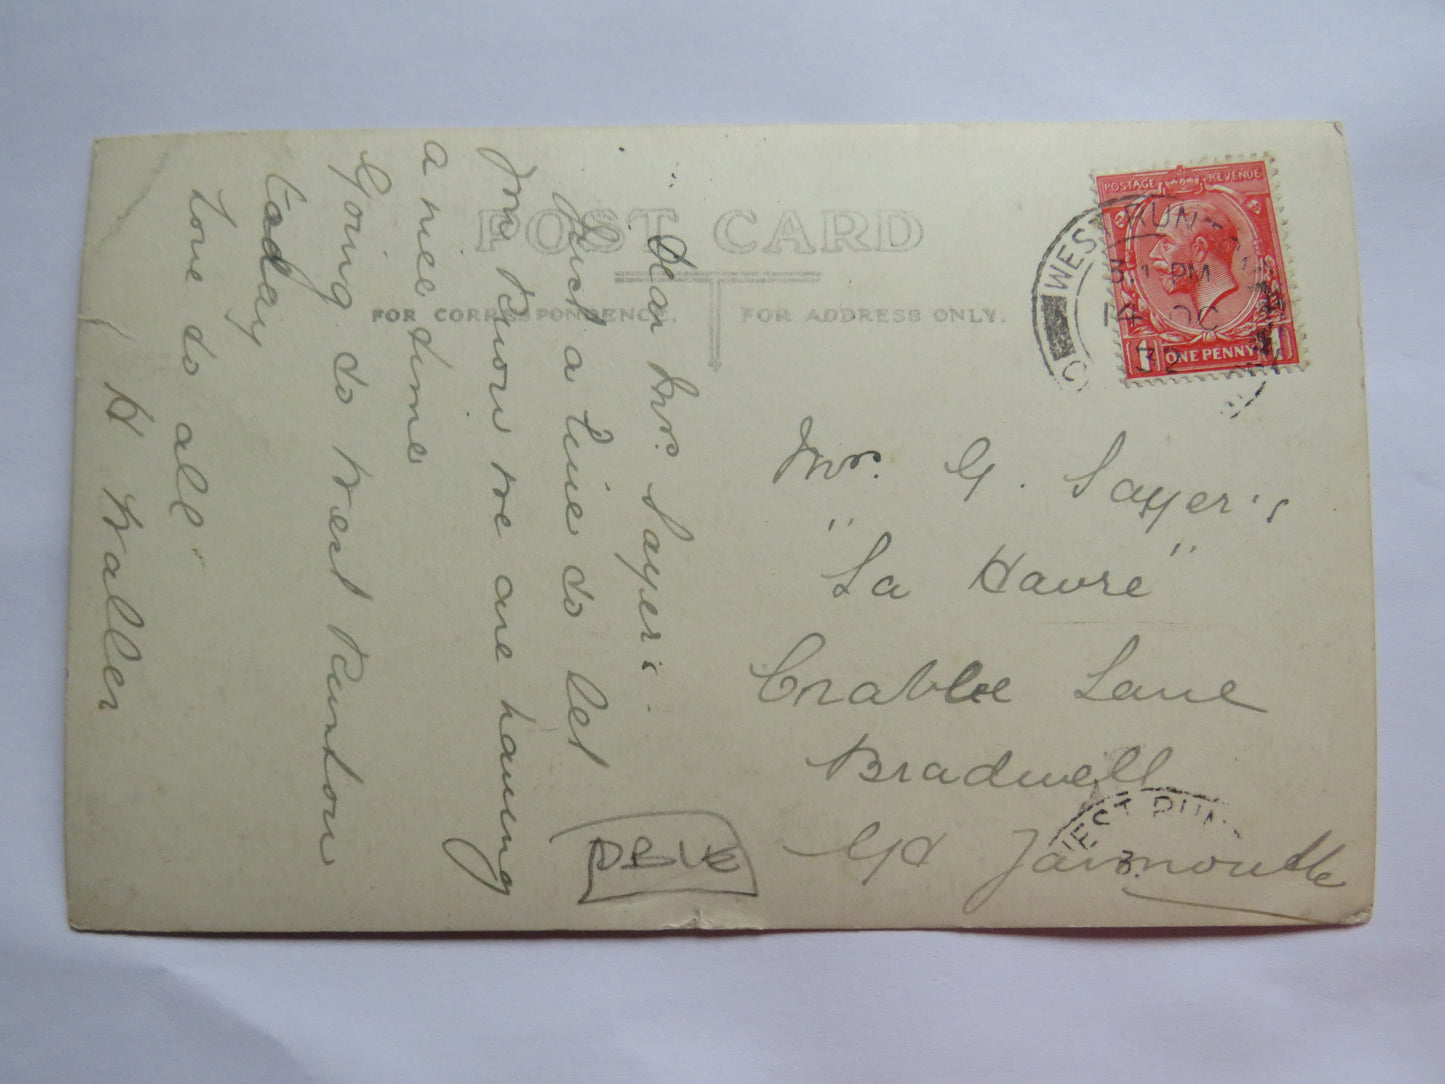 POST CARD
FOR CORRESPONDENCE.
FOR ADDRESS ONLY.
Dear Mrs. Sayer's
Just a line to let
you know we are having
a nice time
Going to West Runton
today
Love to all
H Waller
POSTAGE REVENUE
1 ONE PENNY 1
WEST RUN
PM
14 OC
32
Mrs. G. Sayer's
"La Havre"
Crable Lane
Bradwell
Gt Yarmouth
WEST RUN
3.
DBLE